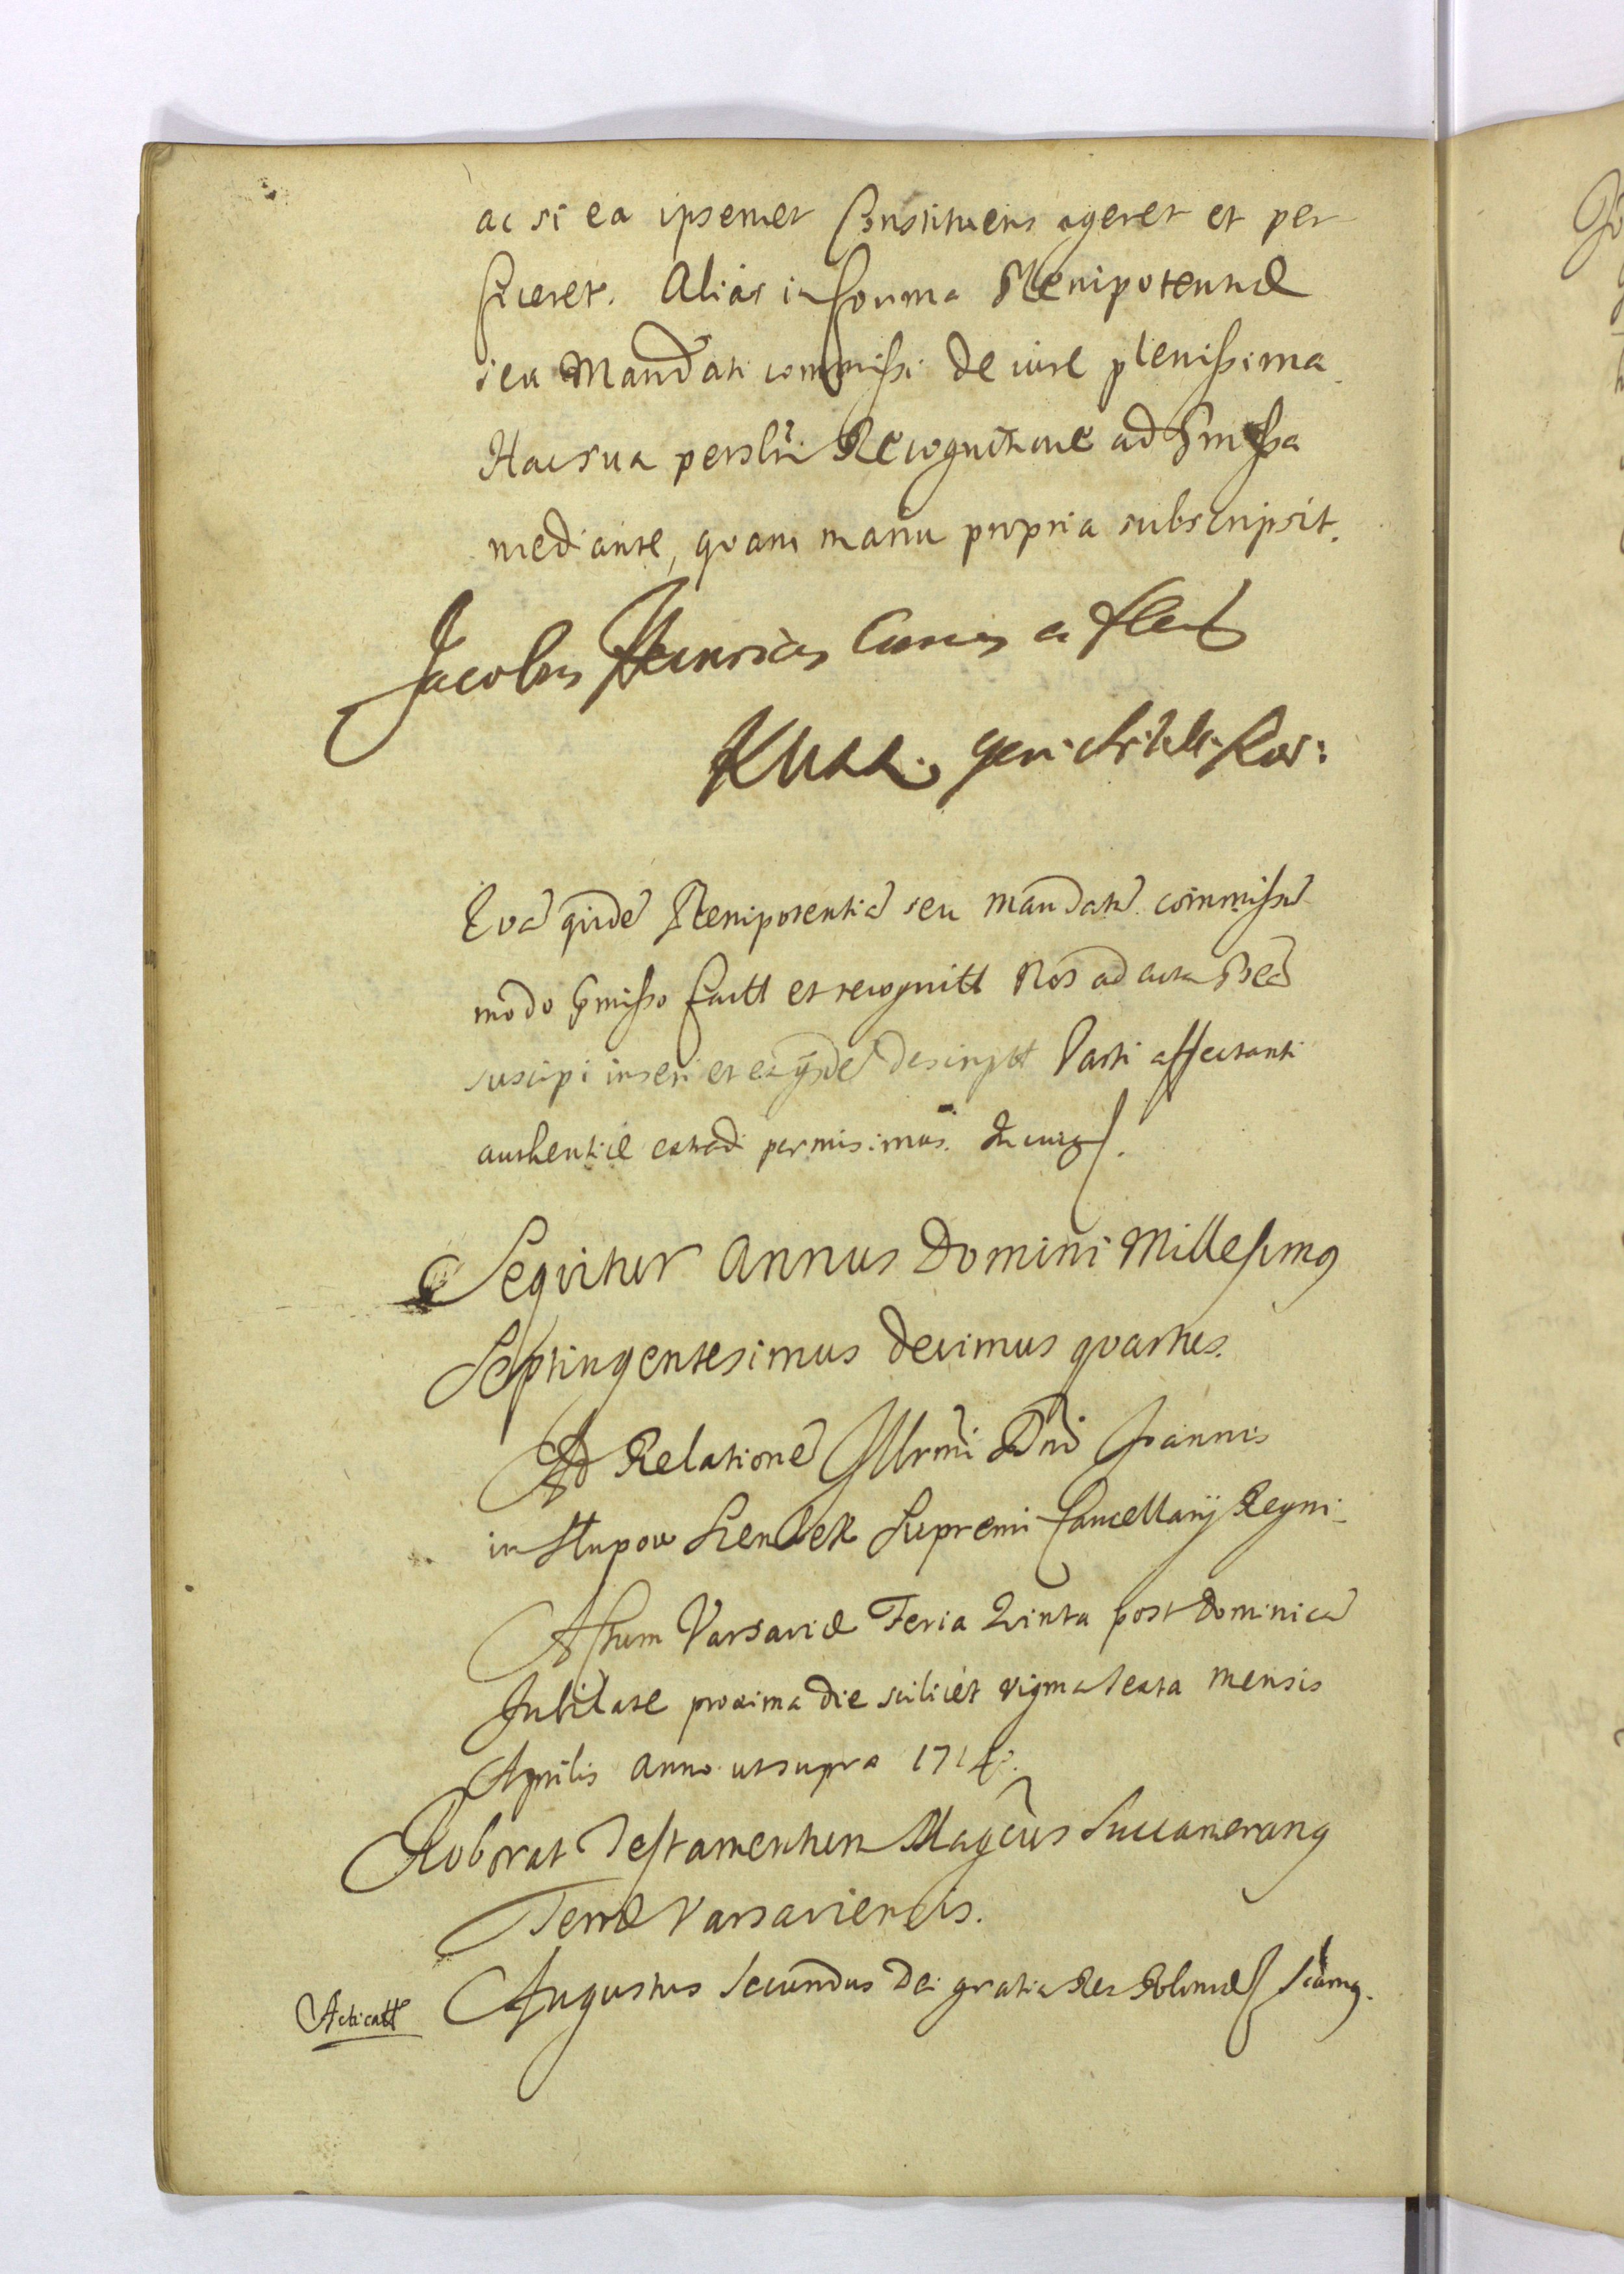 ac si ea ipsemet Constituens ageret et per
ficeret. Alias in forma Plenipotentiæ
seu Mandati commissi de iure plenissima
Hac sua personali Recognitione ad præmissa
mediante, quam manu propria subscripsit.
Jacobus Henricus Comes a Flem
Quæ quidē Plenipotentia seu mandatū commissū
modo præmisso factt et recognitt Nos ad acta
suscipi inseri et exinde descriptt Parti affectanti
authentice extradi permisimus. In cuius
Sequitur Annus Domini Millesimus
Septingentesimus decimus quartus.
Ad Relationē Illrmi Dni Joannis
in Słupow Szembek Supremi Cancellarij Regni
Actum Varsaviæ Feria Quinta post Dominicā
Jubilate proxima die scilicet vigma sexta mensis
Aprilis anno ut supra 1714.
Roborat Testamentum Magcus Succamerarius
Terræ Varsaviensis.
Acticatt
Augustus Secundus Dei gratia Rex Poloniæ